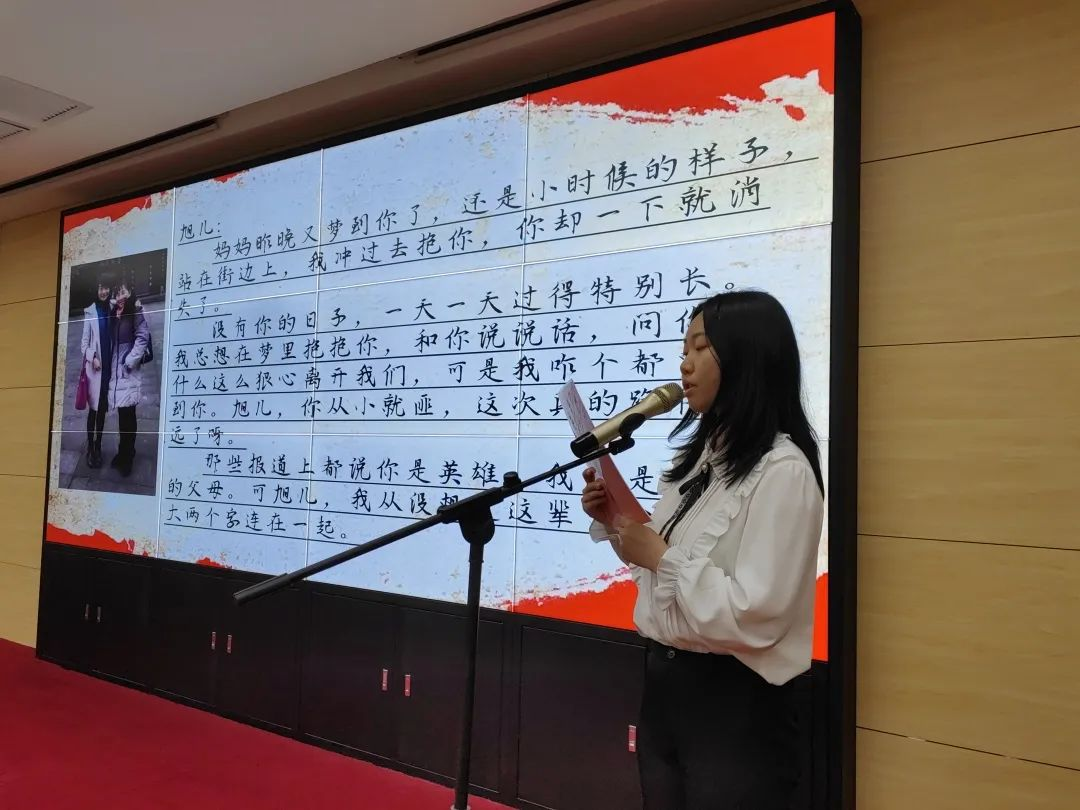 旭儿：
妈妈昨晚又梦到你了，还是小时候的样子，
站在街边上，我冲过去抱你，你却一下就消
失了。
没有你的日子，一天一天过得特别长。
我总想在梦里抱抱你，和你说说话，问
什么这么狠心离开我们，可是我咋个都
到你。旭儿，你从小就 ，这次真的跑
远了呀。
那些报道上都说你是英雄 我 是
的父母。可旭儿，我从没想 这辈
大两个字连在一起。